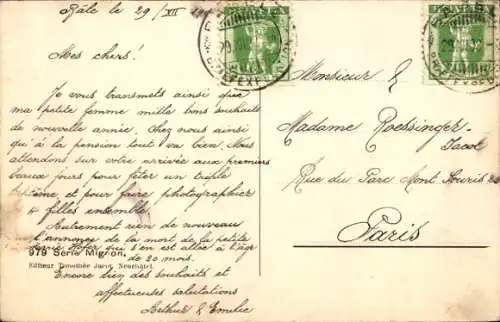 Bâle le 29/XII
Mes chers!
Je vous transmets ainsi que
ma petite femme mille bons souhaits
de nouvelle année. Chez nous ainsi
qu'à la pension tout va bien. Nous
attendons sur votre arrivée aux premiers
beaux jours pour fêter un triple
baptême et pour faire photographier
4 filles ensemble.
Autrement rien de nouveau
l'annonce de la mort de la petite
qui s'en est allée à l'âge
de 20 mois.
Encore bien des souhaits et
affectueuses salutations
Arthur & Emilie
979 Série Mignon.
Editeur Timothée Jacot, Neuchâtel.
HELVETIA
HELVETIA
Monsieur &
Madame Roessinger-
Jacot
Rue du Parc Mont Souris 20
Paris